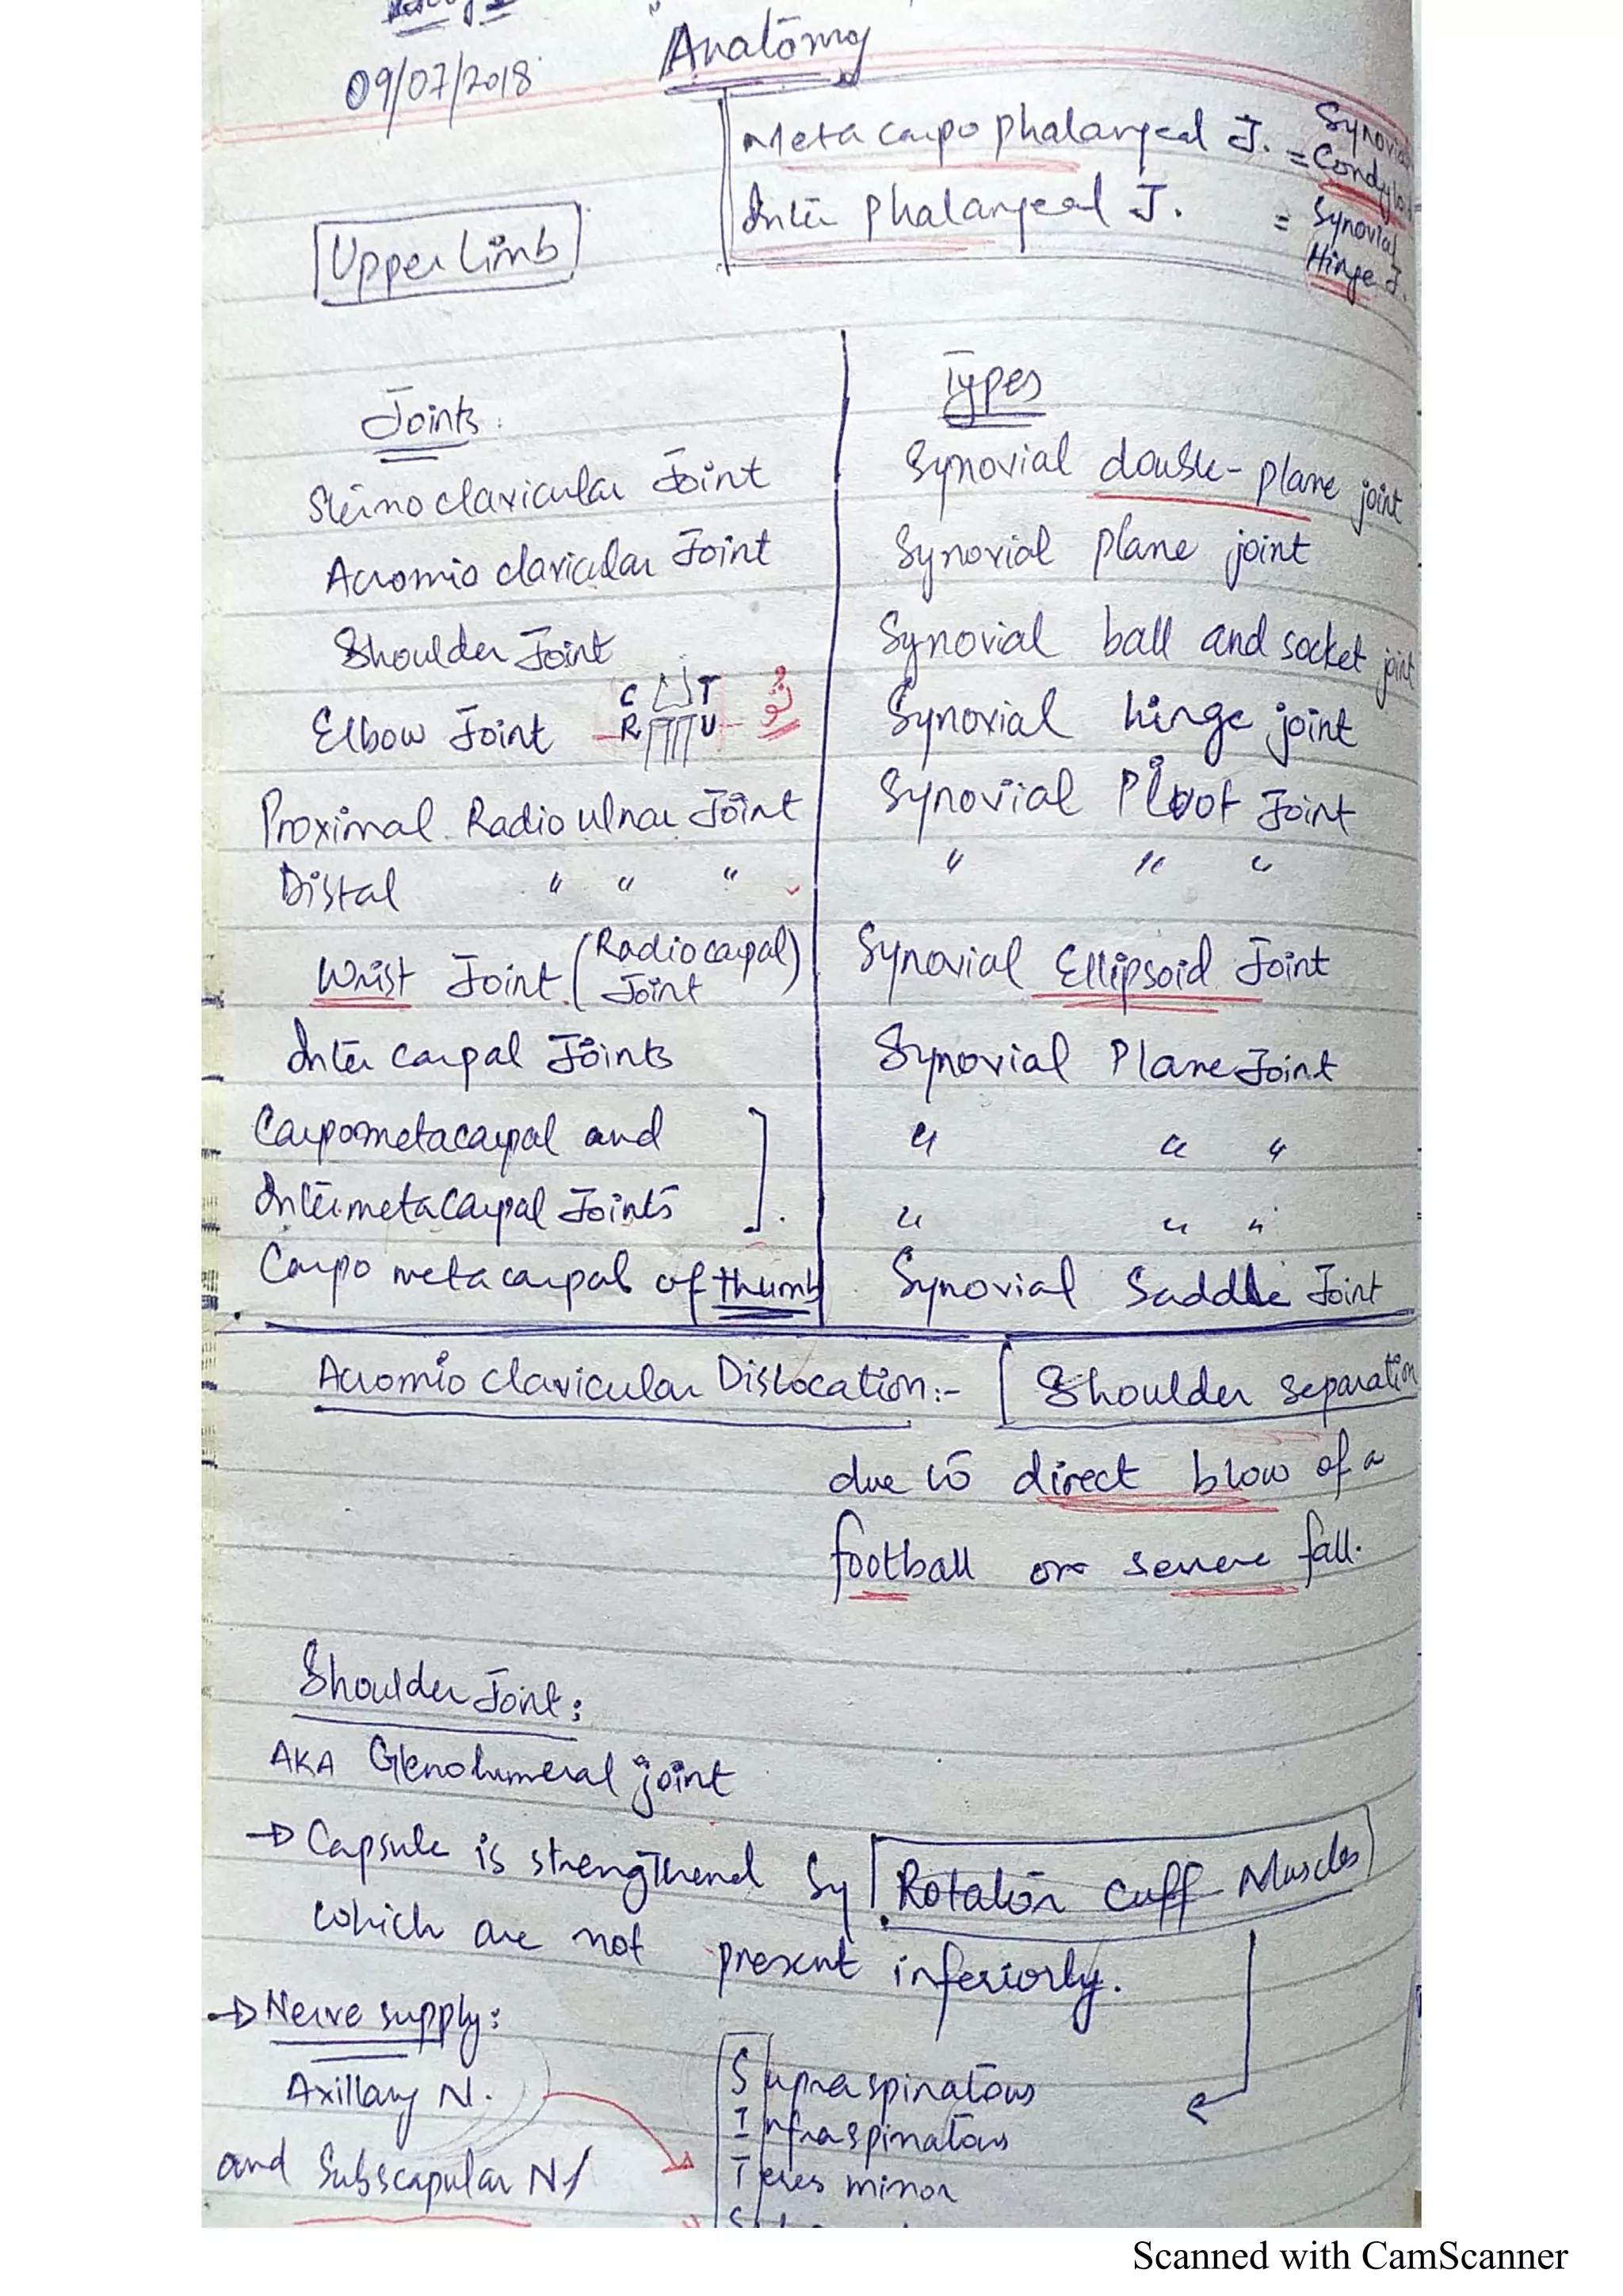 09/07/2018
Anatomy
Meta carpo phalangeal J. = Synovial Condyloid
Inter phalangeal J. = Synovial Hinge J.
Upper Limb
Joints: Types
Sternoclavicular Joint Synovial double-plane joint
Acromio clavicular Joint Synovial plane joint
Shoulder Joint Synovial ball and socket joint
C T
Elbow Joint R U Synovial hinge joint
Proximal Radio ulnar Joint Synovial Pivot Joint
Distal " " " " " "
Wrist Joint (Radiocarpal Joint) Synovial Ellipsoid Joint
Inter carpal Joints Synovial Plane Joint
Carpometacarpal and " " "
Intermetacarpal Joints " " "
Carpo metacarpal of thumb Synovial Saddle Joint
Acromio clavicular Dislocation:- Shoulder separation
due to direct blow of a
football or severe fall.
Shoulder Joint:
AKA Glenohumeral joint
→ Capsule is strengthend by Rotator cuff Muscles
which are not present inferiorly.
→ Nerve supply:
Axillary N.
and Subscapular N
Supraspinatous
Infraspinatous
Teres minor
Scanned with CamScanner